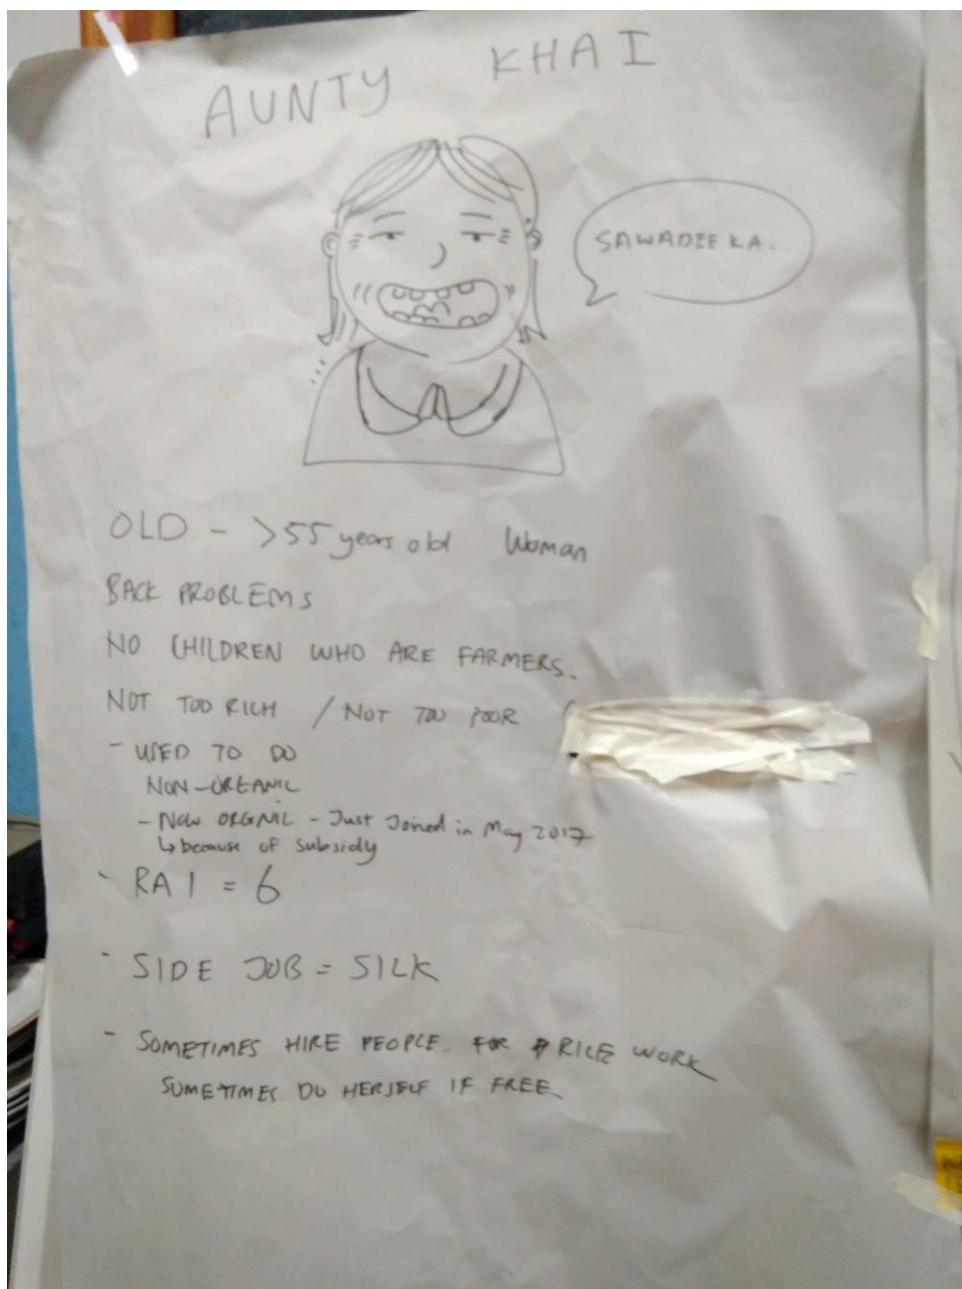 AUNTY KHAI
SAWADEE KA..
OLD - >55 years old Woman
BACK PROBLEMS
NO CHILDREN WHO ARE FARMERS.
NOT TOO RICH / NOT TOO POOR (
- USED TO DO
NON-ORGANIC
- NOW ORGNIC - Just Joined in May 2017
↳ because of subsidy
- RAI = 6
- SIDE JOB = SILK
- SOMETIMES HIRE PEOPLE. FOR RICE WORK
SOMETIMES DO HERSELF IF FREE